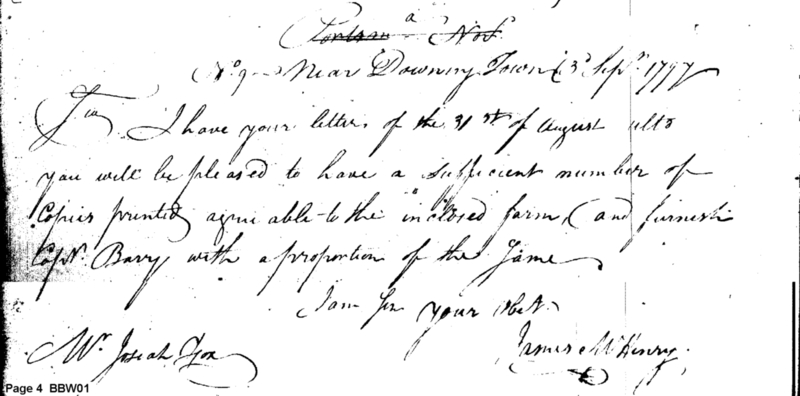 No. 9 Near Downing Town 3d Sepr. 1797
Sir
I have your letters of the 31st. of August ulto
you will be pleased to have a sufficient number of
Copies printed agreeable to the inclosed form, and furnish
Capt. Barry with a proportion of the Same
I am Sir your Obet.
James McHenry.
Mr. Josiah Fox
Page 4 BBW01